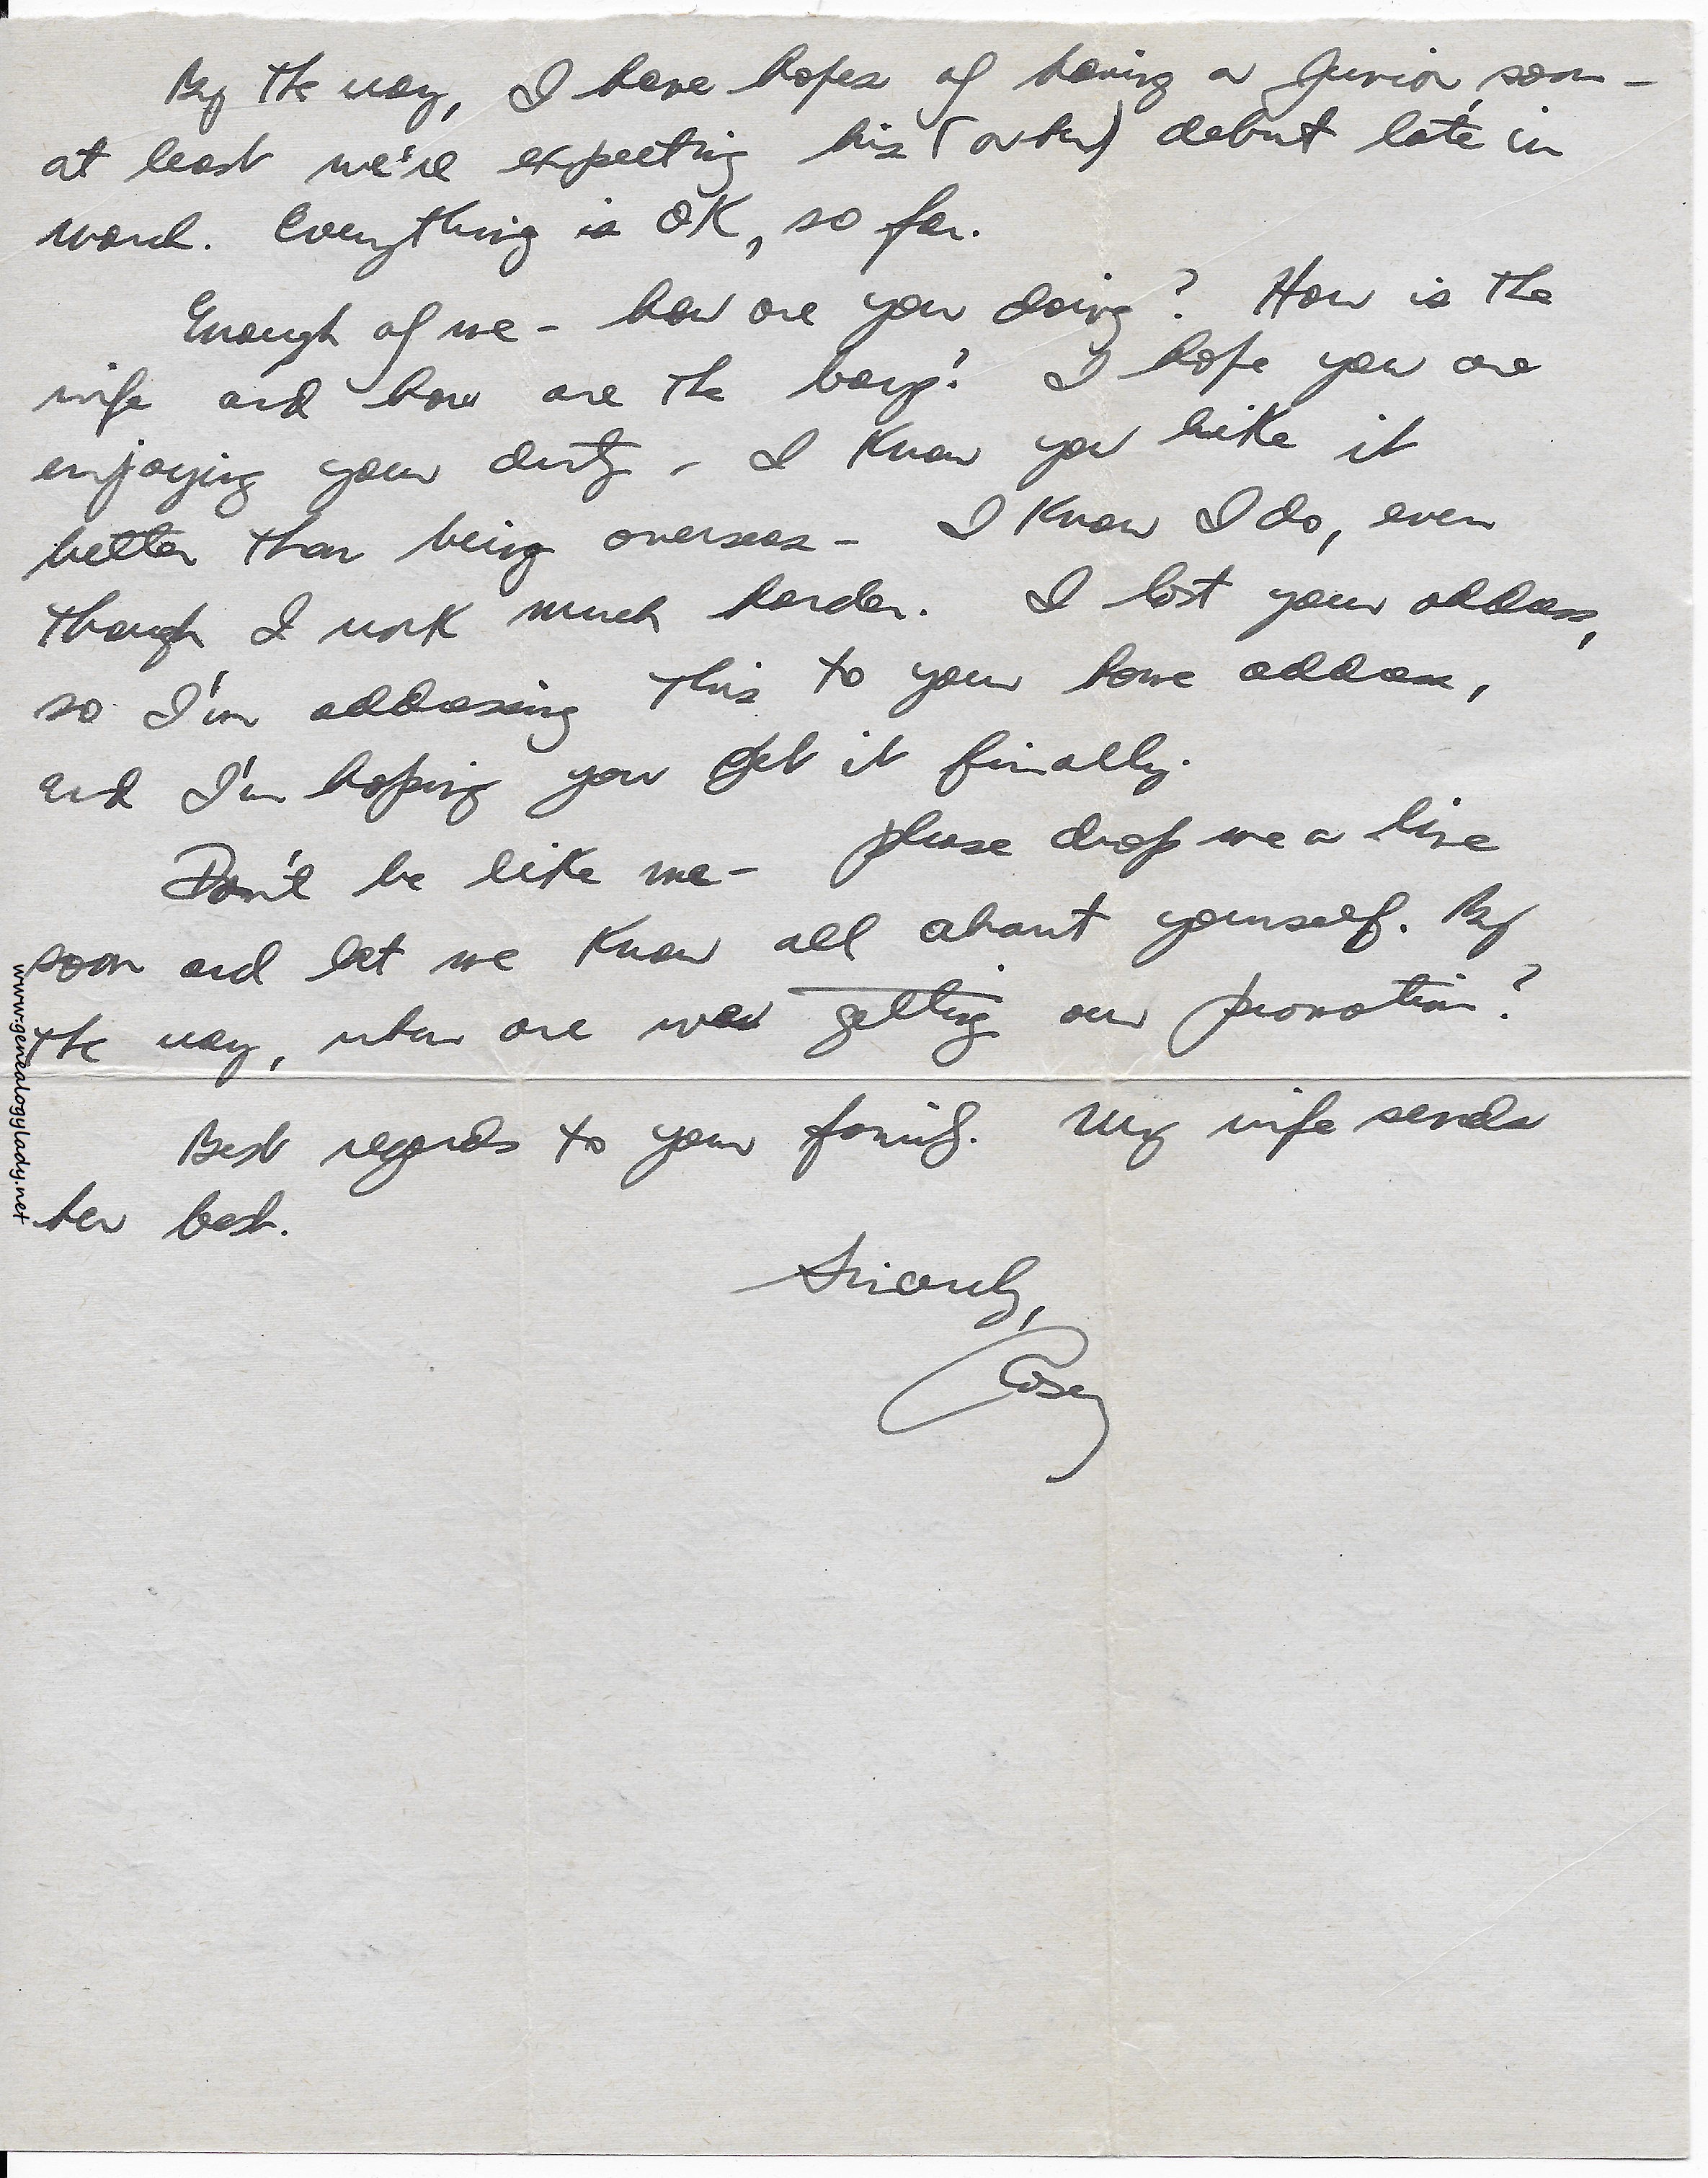 By the way, I have hopes of having a Junior soon -
at least we're expecting his (or her) debut late in
March. Everything is OK, so far.
Enough of me - how are you doing? How is the
wife and how are the boys? I hope you are
enjoying your duty - I know you like it
better than being overseas - I know I do, even
though I work much harder. I lost your address,
so I'm addressing this to your home address,
and I'm hoping you get it finally.
Don't be like me - please drop me a line
soon and let me know all about yourself. By
the way, when are we getting our promotion?
Best regards to your family. My wife sends
her best.
Sincerely,
Casey
www.genealogylady.net